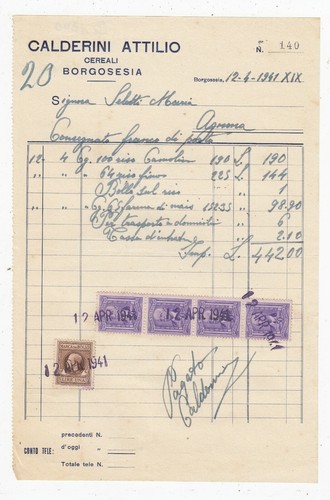 CALDERINI ATTILIO
CEREALI
BORGOSESIA
N. 140
20
Borgosesia, 12-4-1941 XIX
Signora
Agnona
Consegnato franco di porto
12- 4 Cg. 100 riso 190 L. 190
" " " 64 riso fino 225 " 144
" " Bollo sul riso " 1
" " Cg. 65 farina di mais 152.35 " 98.90
Per trasporto a domicilio " 6
Tassa d'entrata " 2.10
L. 442.00
12 APR 1941
12 APR 1941
12 APR 1941
12 APR 1941
Pagato
Calderini
CONTO TELE:
precedenti N.
d'oggi "
Totale tele N.